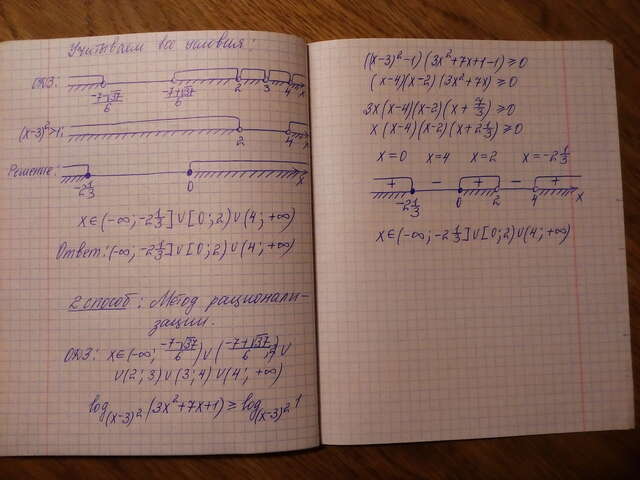 Учитываем все условия:
ОДЗ: (-7-√37)/6 (-7+√37)/6 2 3 4 x
(x-3)²>1: 2 4 x
Решение: -2 1/3 0 x
x∈(-∞; -2 1/3]∪[0; 2)∪(4; +∞)
Ответ: (-∞; -2 1/3]∪[0; 2)∪(4; +∞)
2 способ: Метод рационали-
зации.
ОДЗ: x∈(-∞; (-7-√37)/6)∪((-7+√37)/6; 2)∪
∪(2; 3)∪(3; 4)∪(4; +∞)
log(x-3)² (3x²+7x+1) ≥ log(x-3)² 1
((x-3)²-1)(3x²+7x+1-1)≥0
(x-4)(x-2)(3x²+7x)≥0
3x(x-4)(x-2)(x+7/3)≥0
x(x-4)(x-2)(x+2 1/3)≥0
x=0 x=4 x=2 x=-2 1/3
+ - + - +
-2 1/3 0 2 4 x
x∈(-∞; -2 1/3]∪[0; 2)∪(4; +∞)